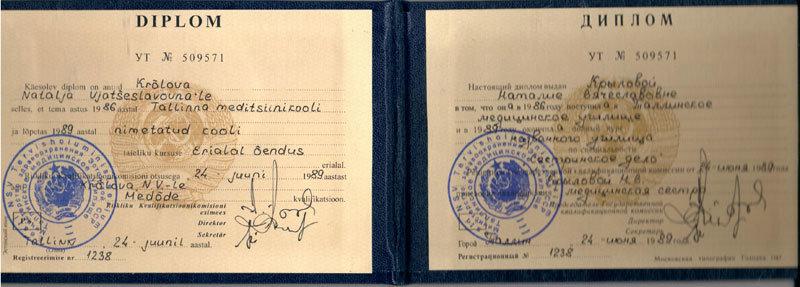 DIPLOM
УТ № 509571
Käesolev diplom on antud Krõlova
Natalja Vjatšeslavovna'le
selles, et tema astus 1986 aastal Tallinna meditsiinikooli
ja lõpetas 1989 aastal nimetatud kooli
täieliku kursuse Erialal Õendus erialal.
Riikliku Kvalifikatsioonikomisjoni otsusega 24 juuni 1989 aastast
Krõlova N.V.-le
Medõde kvalifikatsioon.
Riikliku Kvalifikatsioonikomisjoni
esimees
Direktor
Sekretär
Tallinn 24 juunil aastal.
Registreerimise nr. 1238
ДИПЛОМ
УТ № 509571
Настоящий диплом выдан Крыловой
Наталие Вячеславовне
в том, что она в 1986 году поступила в Таллинское
медицинское училище
и в 1989 году окончила полный курс
названного училища
по специальности
Сестринское дело
комиссии от 24 июня 1989
Крыловой Н.В.
медицинская сестра
квалификационной комиссии
Директор
Секретарь
Город Таллин 24 июня 1989 года
Регистрационный № 1238
Московская типография Гознака